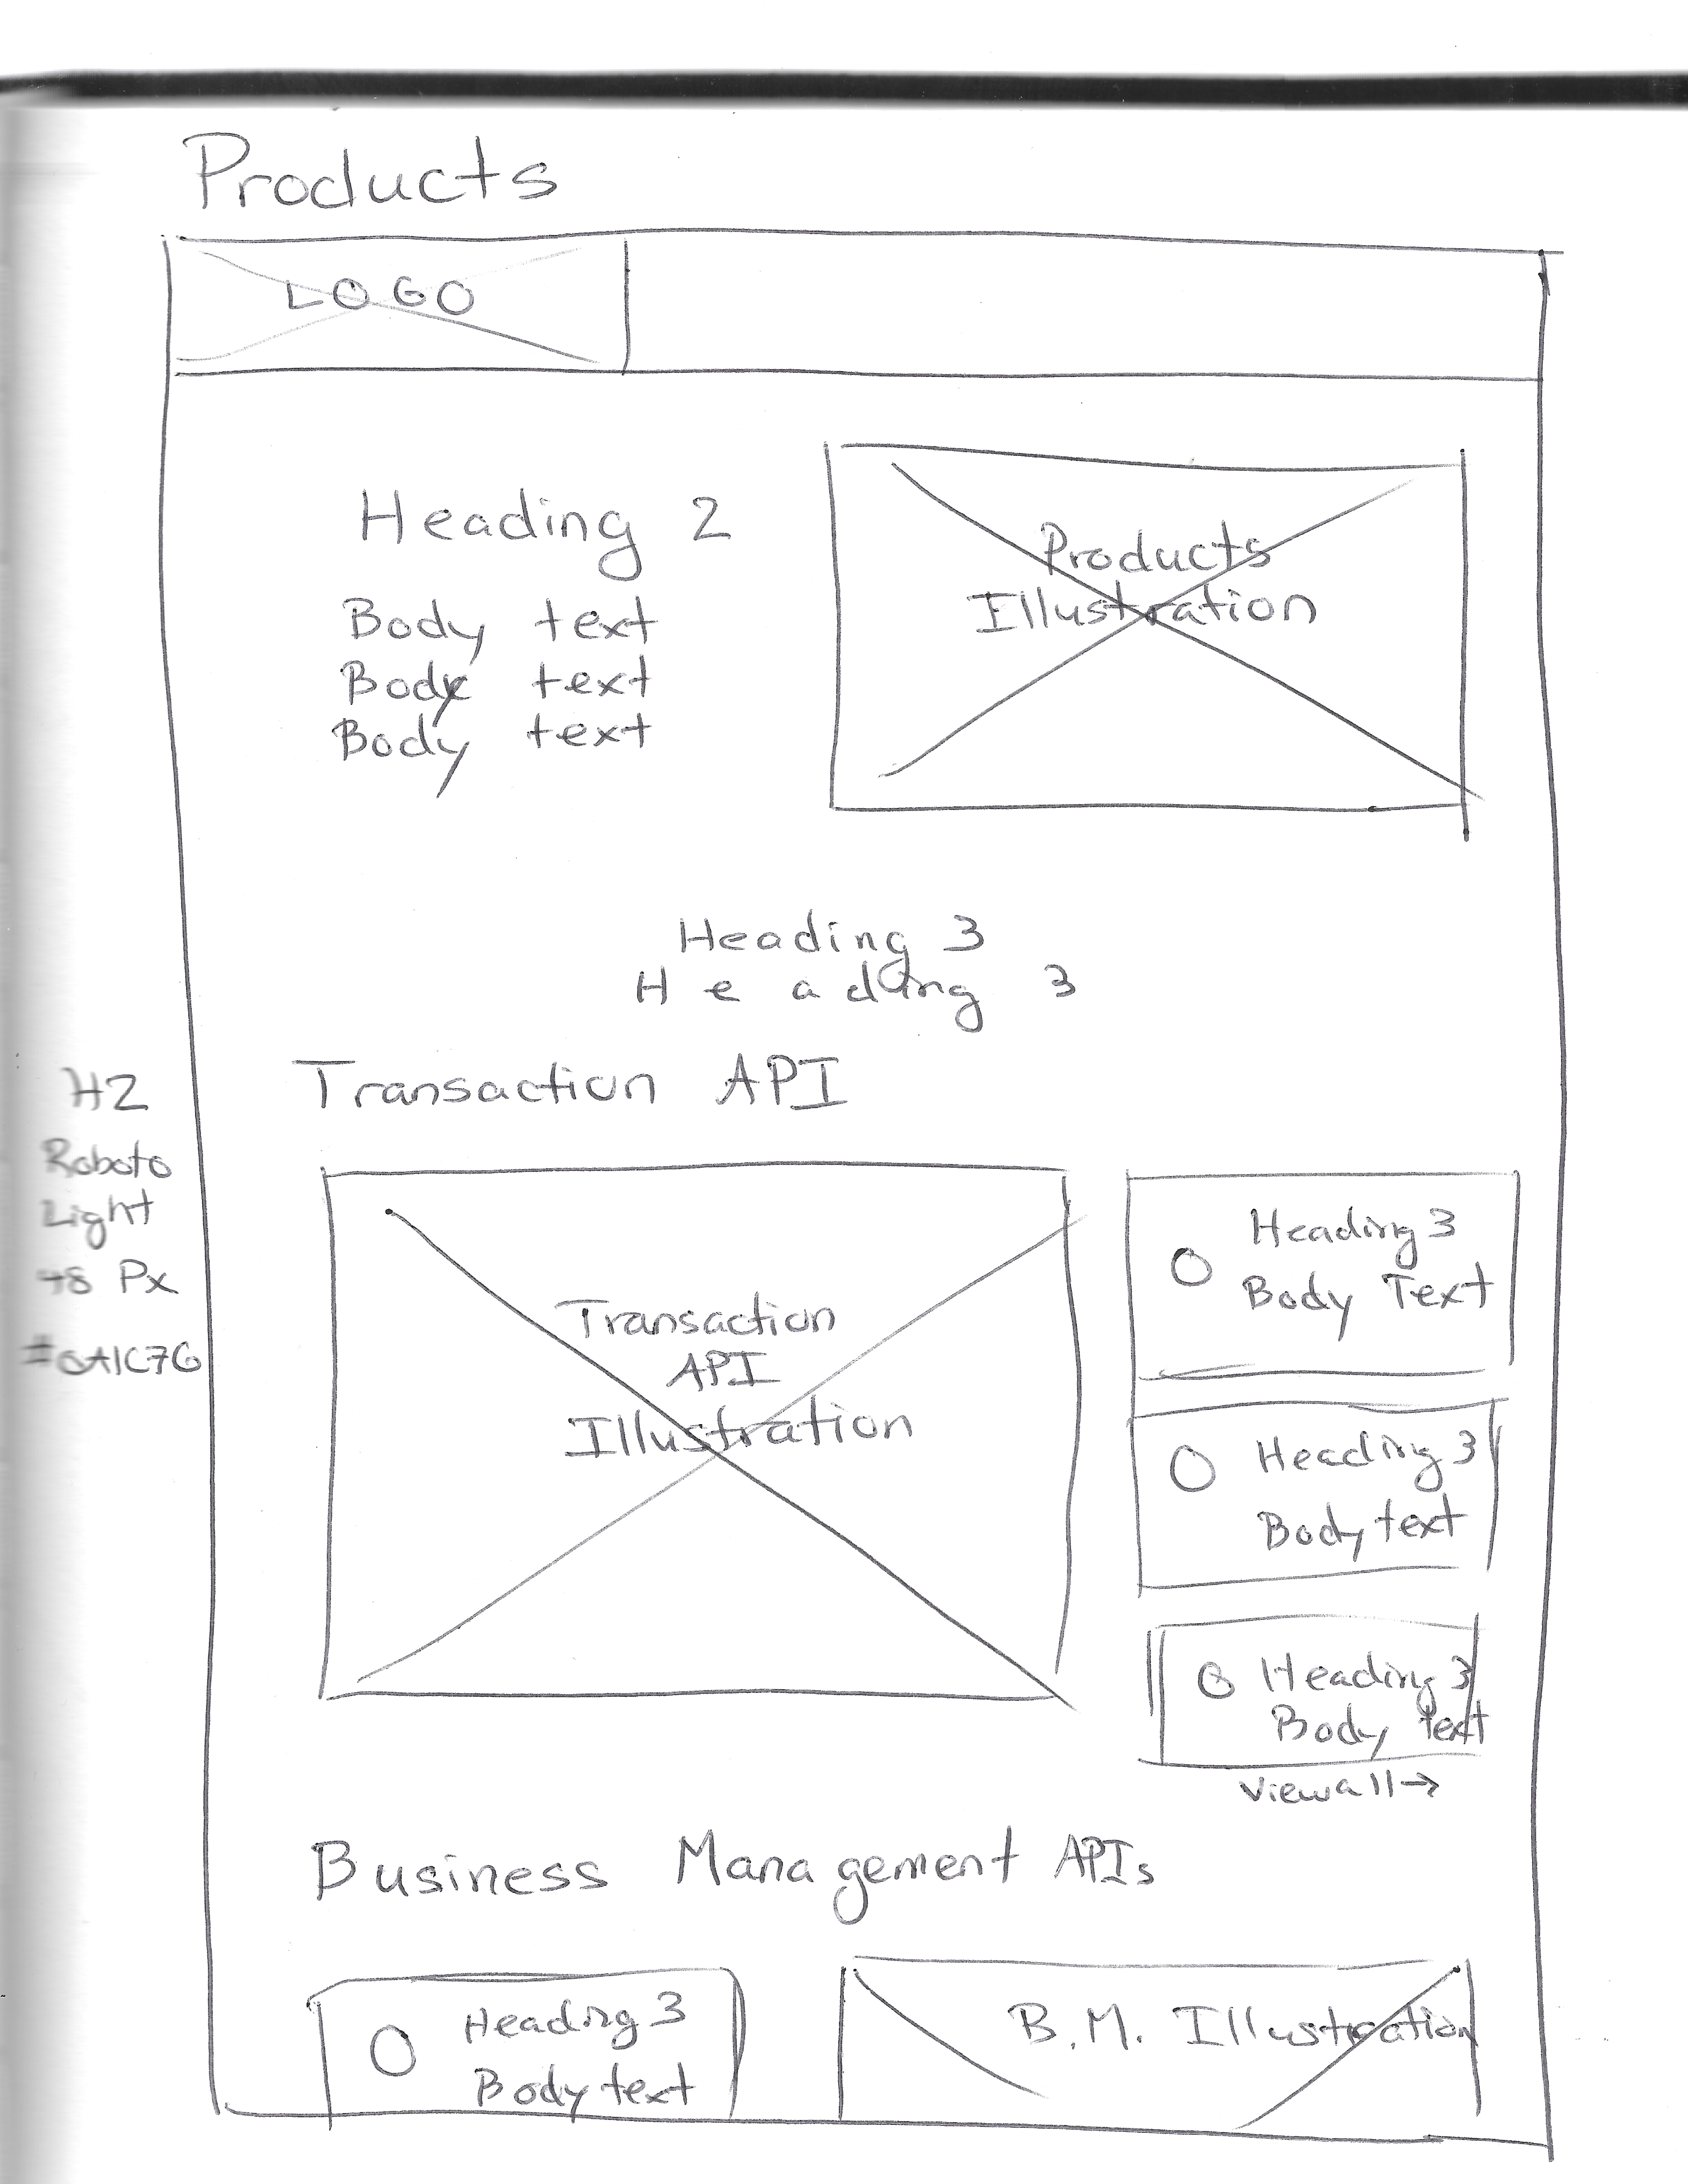 Products
LOGO
Heading 2
Body text
Body text
Body text
Products
Illustration
Heading 3
Heading 3
H2
Roboto
Light
48 Px
Transaction API
Transaction
API
Illustration
Heading 3
Body Text
Heading 3
Body text
Heading 3
Body text
View all →
Business Management APIs
Heading 3
Body text
B.M. Illustration